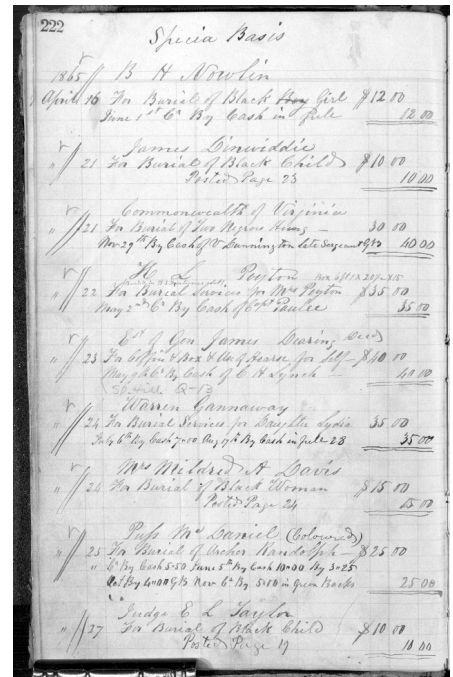 222
Specia Basis
1865 // B H Nowlin
April 16 For Burial of Black Boy Girl $12 00
June 1st Cr By Cash in full 12 00
James Dinwiddie
" // 21 For Burial of Black Child $10 00
Posted Page 23 10 00
Commonwealth of Virginia
21 For Burial of Two Negroes Hung — 30 00
Nov 29th By Cash of V Dunnington late Sergeant GB 40 00
H L Peyton Box 6ft
" // 22 For Burial Services for Mrs Peyton $35 00
May 2nd Cr By Cash of Capt Paulee 35 00
Est of Gen James Dearing Decd
23 For Coffin & Box & Use of Hearse for Self — $40 00
May 9th Cr By Cash of C H Lynch — 40 00
Sp. Hill Q-13
Warren Gannaway
24 For Burial Services for Daughter Lydia 35 00
July 6th By Cash 7=00 Aug 19th By Cash in full 28 35 00
Mrs Mildred A Davis
" // 24 For Burial of Black Woman $15 00
Posted Page 24 15 00
Puss McDaniel (Coloured)
" // 25 For Burial of Archer Randolph — $25 00
Cr By Cash 5=50 June 5th By Cash 10=00 By 3=25
Oct By 4=00 GB Nov 6th By 5=00 in Green Backs 25 00
Judge E L Taylor
" // 27 For Burial of Black Child $10 00
Posted Page 19 10 00